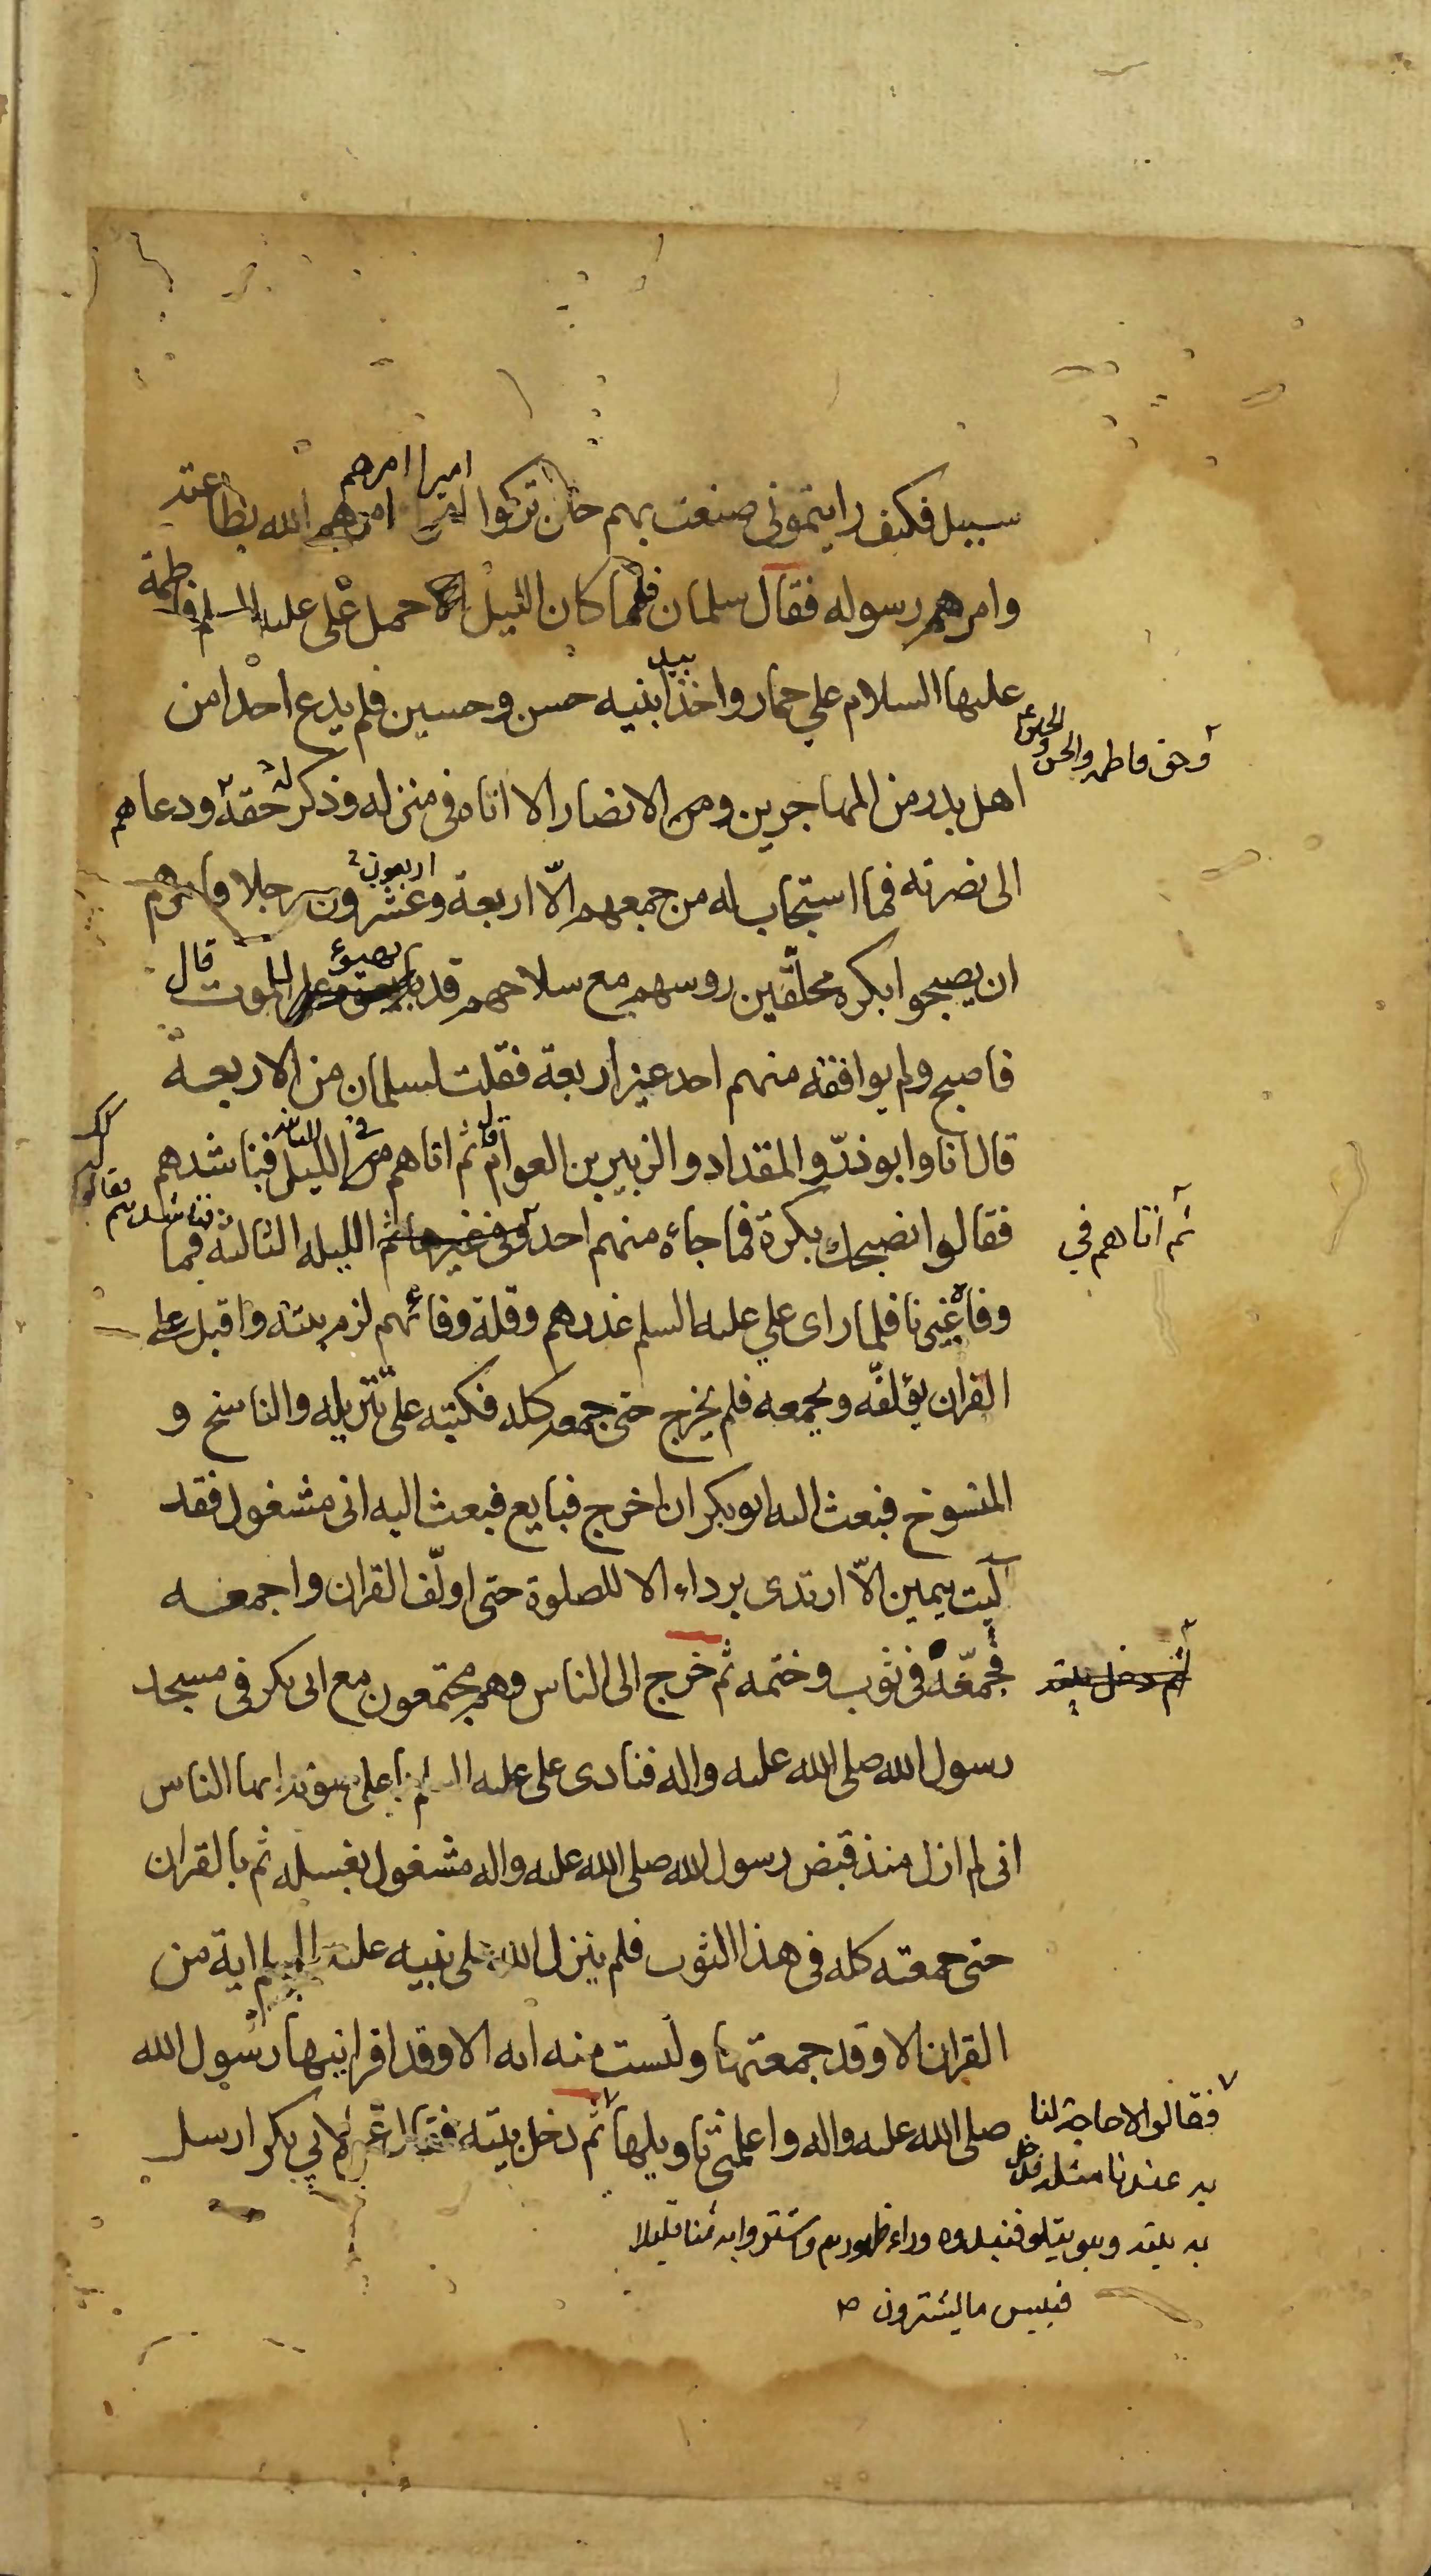 سبيل فكيف رايتموني صنعت بهم حين تركوا امرا امرهم الله بطاعته
اميرا امرهم
وامرهم رسوله فقال سلمان فلما كان الليل حمل علي عليه السلم فاطمة
عليها السلام علي حمار واخذ ابنيه حسن وحسين فلم يدع احدا من
بيد
اهل بدر من المهاجرين ومن الانصار الا اتاه في منزله وذكر حقه ودعاهم
وحق فاطمه والحسن والحسين
الى نصرته فما استجاب له من جمعهم الّا اربعة وعشرون رجلا
اربعون
ان يصبحوا بكره محلّقين روسهم مع سلاحهم قد الموت قال
فاصبح ولم يوافقه منهم احد غير اربعة فقلت لسلمان من الاربعة
قال انا وابو ذرّ والمقداد والزبير بن العوام ثم اتاهم من الليل فناشدهم
قال
فقالوا نصبحك بكرة فما جاءه منهم احد الليله الثالثه فما
فناشدهم فقالوا
ثم اتاهم في
وفاه غيرنا فلما راى علي عليه السلم غدرهم وقلة وفائهم لزم بيته واقبل على
القران يؤلفّه ويجمعه فلم يخرج حتى جمعه كله فكتبه على تنزيله والناسخ و
المنسوخ فبعث اليه ابو بكر ان اخرج فبايع فبعث اليه اني مشغول فقد
آليت بيمين الّا ارتدى برداء الا للصلوة حتى اولّف القران واجمعه
فجمعّه في ثوب وختمه ثم خرج الى الناس وهم مجتمعون مع ابى بكر في مسجد
ثم دخل بيته
رسول الله صلى الله عليه واله فنادى على عليه السلم باعلى صوته ايها الناس
انى لم ازل منذ قبض رسول الله صلى الله عليه واله مشغول بغسله ثم بالقران
حتى جمعته كله في هذا الثوب فلم ينزل الله على نبيه عليه السلم اية من
القران الا وقد جمعتها وليست منه ايه الا وقد اقرانيها رسول الله
صلى الله عليه واله واعلمنى تاويلها ثم دخل بيته فقال عمر لابي بكر ارسل
فقالوا لا حاجة لنا
به عندنا مثله فدخل
به بيته وهو يتلو فنبذوه وراء ظهورهم واشتروا به ثمنا قليلا
فبيس ما يشترون